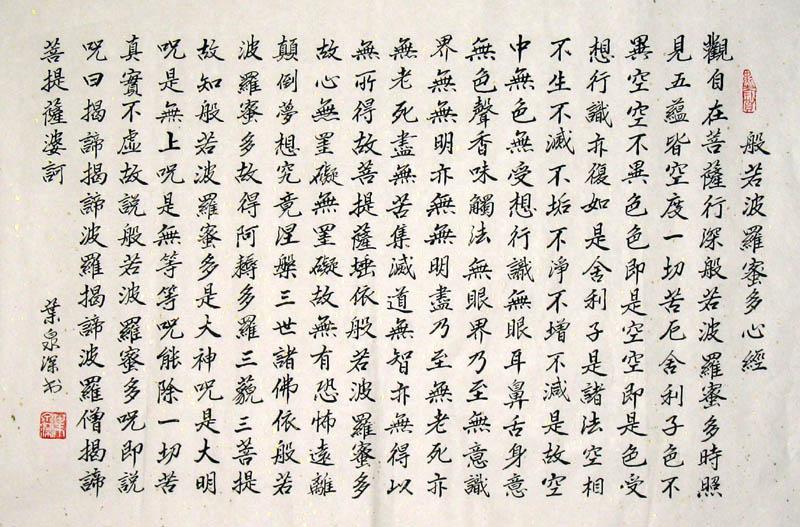 般若波羅蜜多心經
觀自在菩薩行深般若波羅蜜多時照
見五蘊皆空度一切苦厄舍利子色不
異空空不異色色即是空空即是色受
想行識亦復如是舍利子是諸法空相
不生不滅不垢不淨不增不減是故空
中無色無受想行識無眼耳鼻舌身意
無色聲香味觸法無眼界乃至無意識
界無無明亦無無明盡乃至無老死亦
無老死盡無苦集滅道無智亦無得以
無所得故菩提薩埵依般若波羅蜜多
故心無罣礙無罣礙故無有恐怖遠離
顛倒夢想究竟涅槃三世諸佛依般若
波羅蜜多故得阿耨多羅三藐三菩提
故知般若波羅蜜多是大神呪是大明
呪是無上呪是無等等呪能除一切苦
真實不虛故說般若波羅蜜多呪即說
呪曰揭諦揭諦波羅揭諦波羅僧揭諦
菩提薩婆訶
葉泉深书